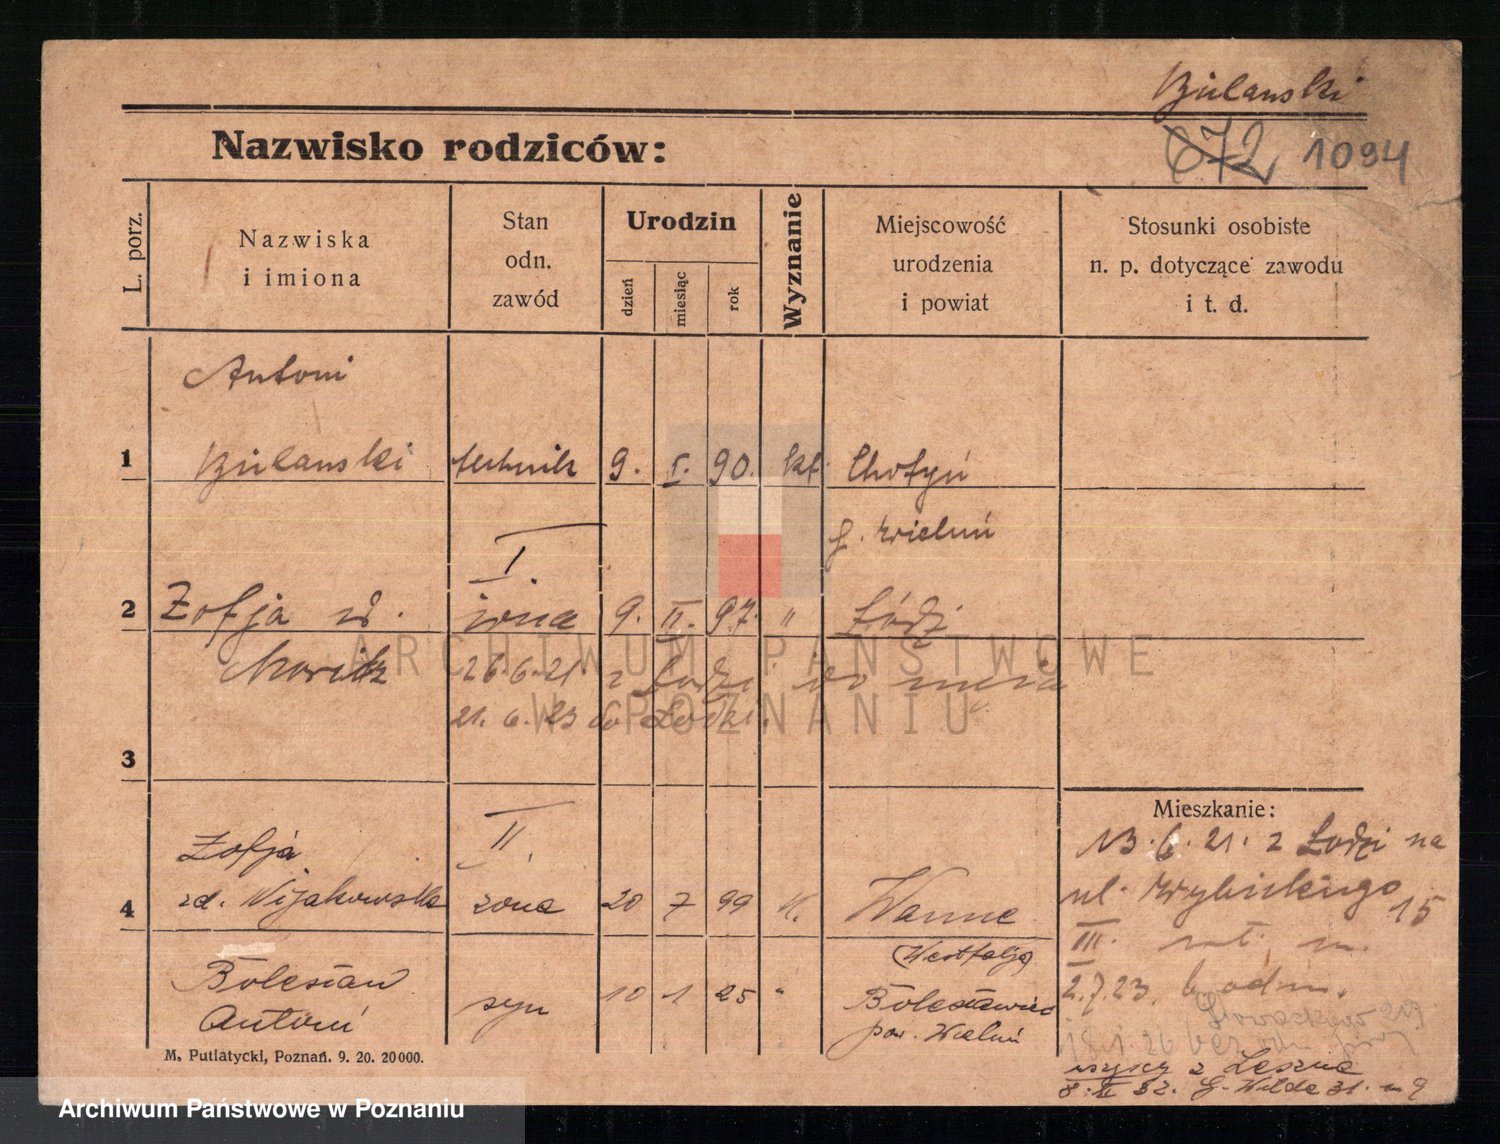 Nazwisko rodziców:
1094
L. porz.
Nazwiska
i imiona
Stan
odn.
zawód
Urodzin
dzień
miesiąc
rok
Wyznanie
Miejscowość
urodzenia
i powiat
Stosunki osobiste
n. p. dotyczące zawodu
i t. d.
Antoni
1 technik 9. I. 90. kt. Chotyń
Wieluń
I.
2 Zofja żona 9. II. 97. " Łódź
26.6.21 z Łodzi do męża
21. 6. 23 do Łodzi.
3
Mieszkanie:
Zofja II. 13. 6. 21. z Łodzi na
4 zd. żona 20 7 99 Wanne
ul. Wybickiego 15
(Westfalja) III.
Bolesław syn 10 1 25 " Bolesławiec 2.7.23.
Antoni pow. Wieluń
18.1.26
z Leszna
G. Wilda 31. m 9
M. Putiatycki, Poznań. 9. 20. 20000.
ARCHIWUM PAŃSTWOWE
W POZNANIU
Archiwum Państwowe w Poznaniu